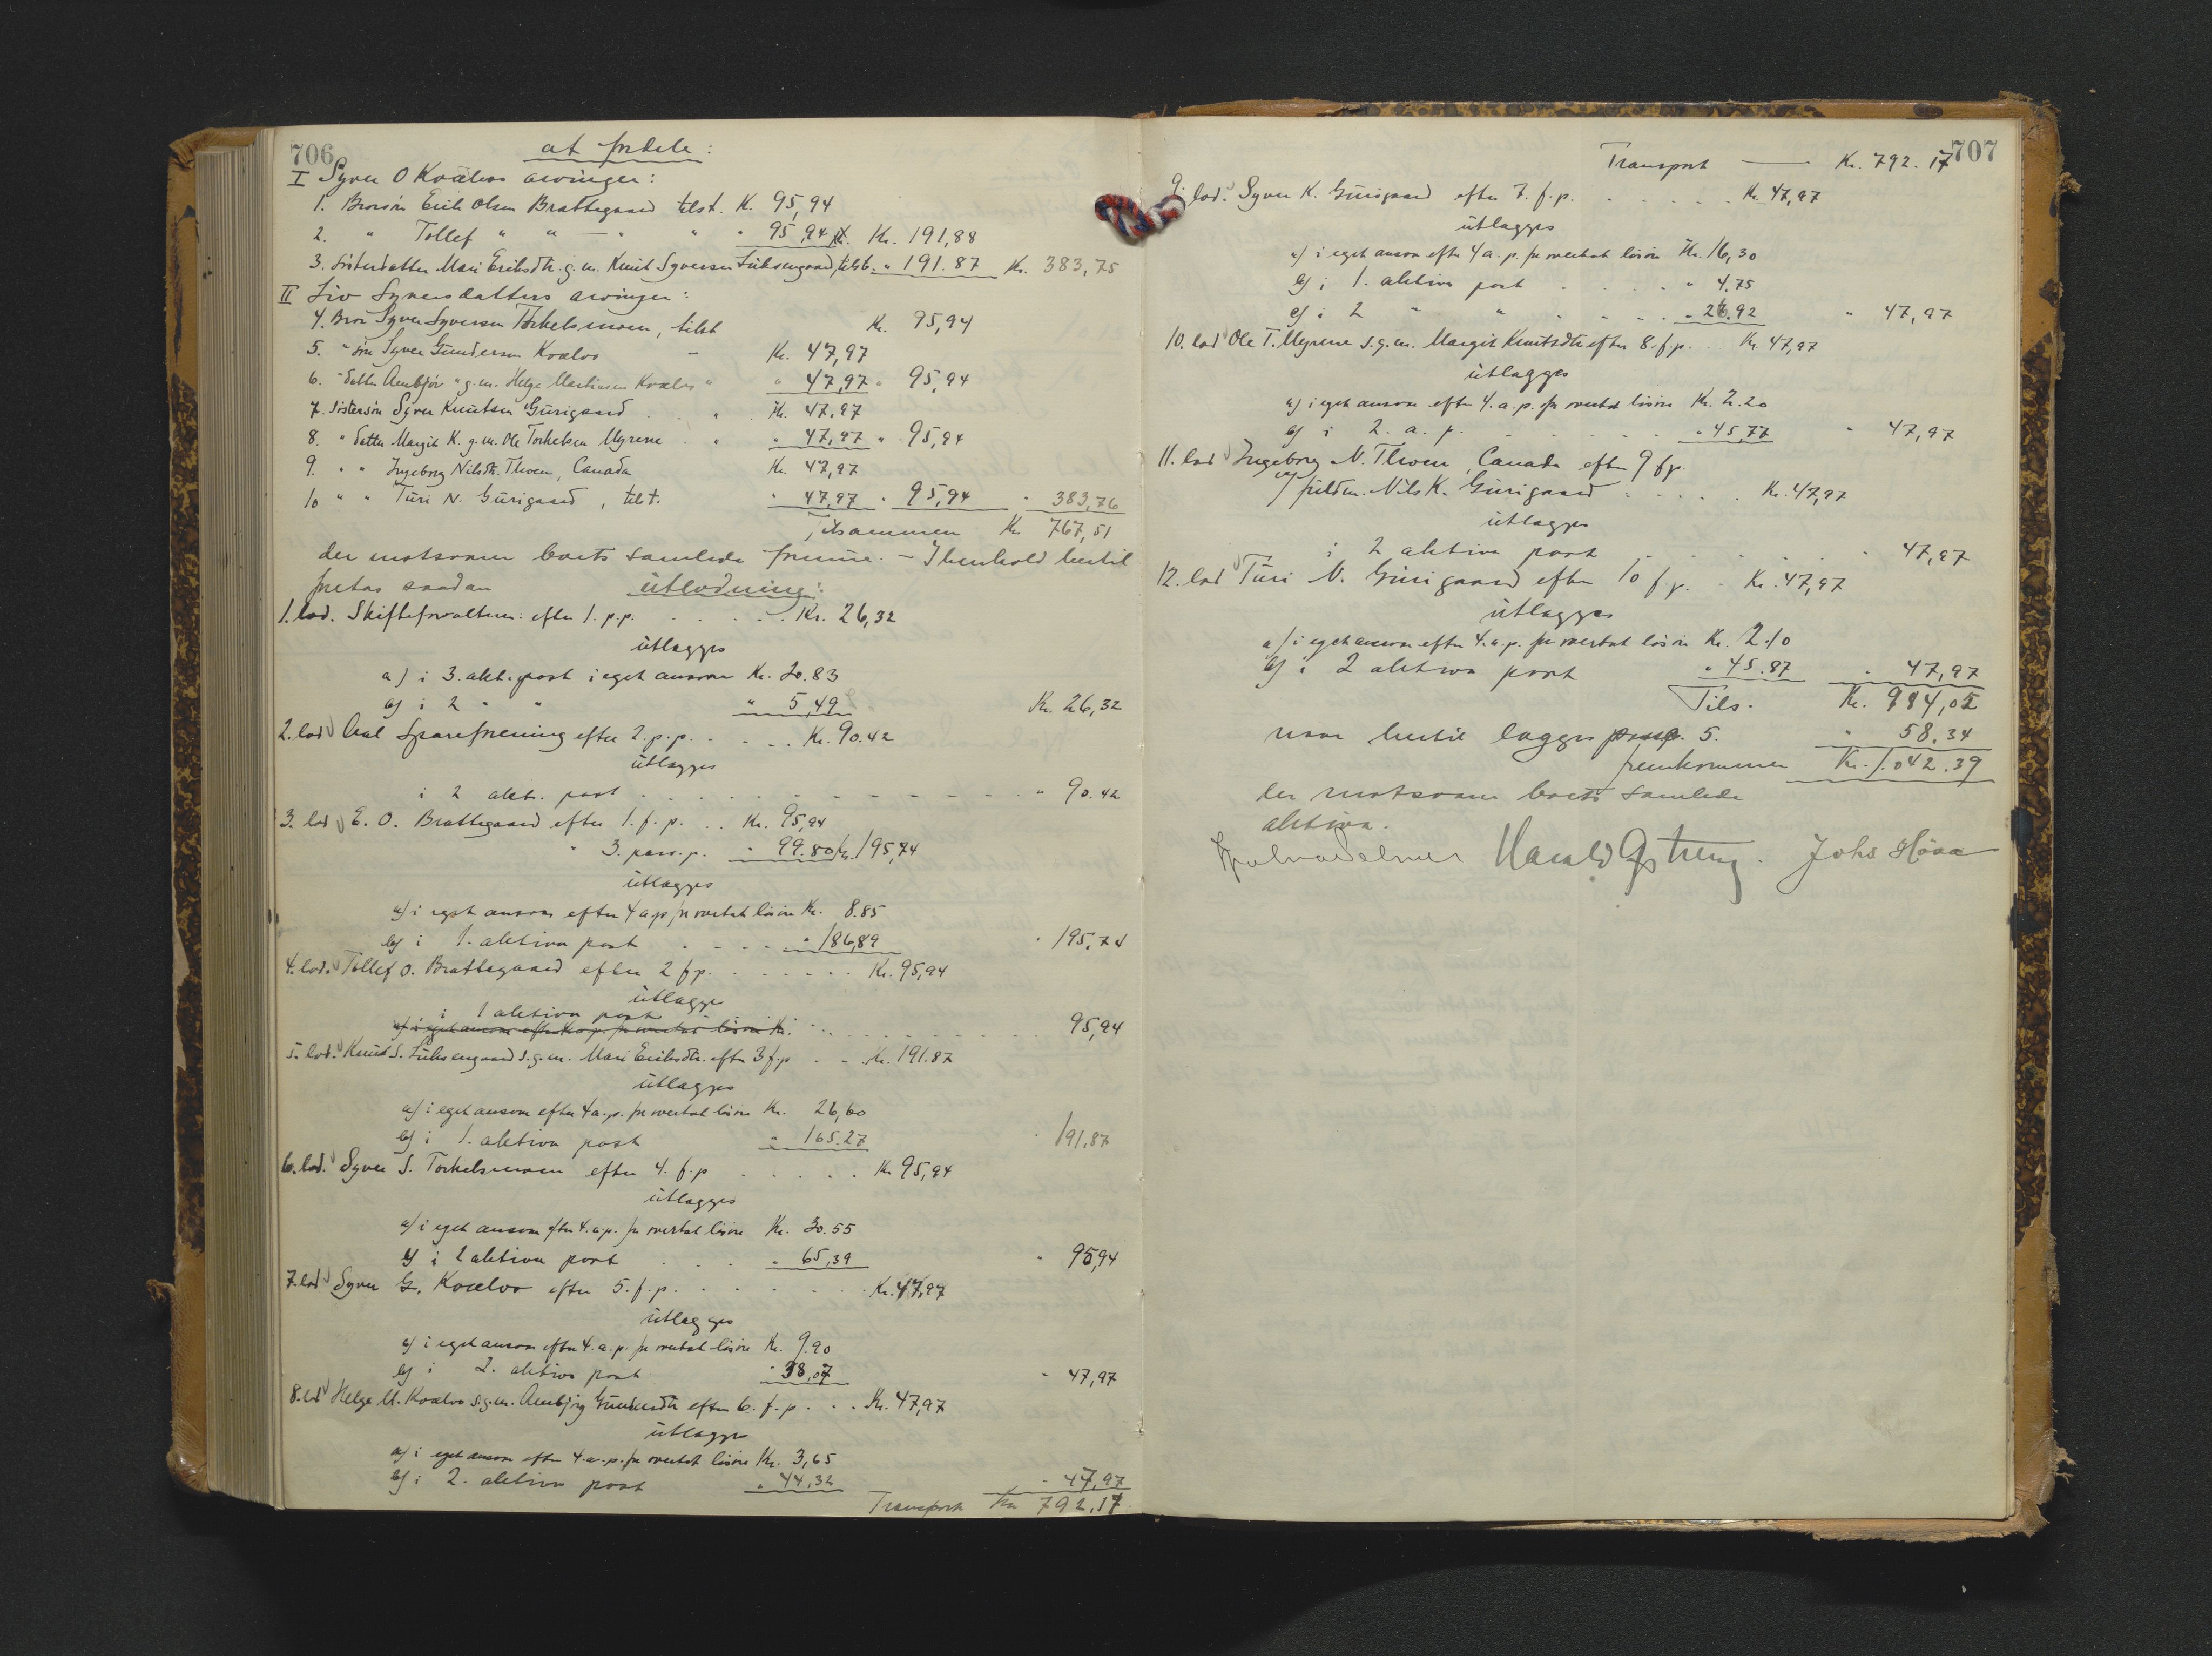 706
at fordele:
I Syver O Kvælvos arvinger:
1. Brorsön Erik Olsen Brattegaard tilst. K. 95,94
2. " Tollef " " — " " " 95,94 Kr. 191,88
3. Sösterdatter Mari Eriksdtr. g. m. Knut Syversen Liksengaard, tilst. " 191.87 Kr. 383,75
II Liv Syversdatters arvinger:
4. Bror Syver Syversen Torkelsmoen, tilst Kr. 95,94
5. " sön Syver Gundersen Kvælvo " Kr. 47,97
6. " datter Aembjör " g. m. Helge Martinsen Kvælvo " " 47,97 " 95,94
7. Söstersön Syver Knutsen Gurigaard . " Kr. 47,97
8. " datter Margit K. g. m. Ole Torkelsen Myrene . " " 47,97 " 95,94
9. " " Ingeborg Nilsdtr. Thoen, Canada Kr. 47,97
10 " " Turi N. Gurigaard, tilst. " 47,97 " 95,94 " 383,76
Tilsammen Kr 767,51
der motsvarer boets samlede formue. — I henhold hertil
foretas saadan utlodning:
1. lod. Skifteforvalteren: efter 1. p.p. . . . . . Kr. 26,32
utlægges
a) i 3. akt. post i eget ansvar Kr. 20.83
b) i 2 " " " 5,49 Kr. 26,32
2. lod Aal Spareforening efter 2. p.p. . . . . Kr. 90.42
utlægges
i 2 akt. post . . . . . . . . . . " 90.42
3. lod E. O. Brattegaard efter 1. f. p. . . Kr. 95,94
" 3. pass. p. " 99.80 Kr. 195,74
utlægges
a) i eget ansvar efter 4 a.p. for overtat lösöre Kr. 8.85
b) i 1. aktiva post . . . . " 186,89 " 195,74
4. lod. Tollef O. Brattegaard efter 2 f.p. . . . . . . Kr. 95,94
utlægges
i 1 aktiva post
a) i eget ansvar efter 4 a.p. for overtat lösöre Kr. . . . . . . . . 95,94
5. lod. Knut S. Liksengaard s. g. m. Mari Eriksdtr. efter 3 f.p . . Kr. 191.87
utlægges
a) i eget ansvar efter 4 a. p. for overtat lösöre Kr. 26,60
b) i 1. aktiva post " 165.27 " 191,87
6. lod. Syver S. Torkelsmoen efter 4. f. p . . . . . Kr 95,94
utlægges
a) i eget ansvar efter 4. a.p. for overtat lösöre Kr. 30.55
b) i 1 aktiva post . . . " 65,39 " 95,94
7. lod Syver G. Kvælvo efter 5. f. p. . . . . . . Kr. 47,97
utlægges
a) i eget ansvar efter 4. a. p. for overtat lösöre Kr. 9.90
b) i 2. aktiva post " 38,07 " 47,97
8. lod Helge M. Kvælvo s. g. m. Aembjörg Gundersdtr efter 6. f. p . . . Kr. 47,97
utlægges
a) i eget ansvar efter 4. a. p. for overtat lösöre Kr. 3,65
b) i 2. aktiva post " 44,32 " 47,97
Transport Kr 792,17
707
Transport — Kr. 792.17
9. lod. Syver K. Gurigaard efter 7. f. p. . . . . . . Kr. 47,97
utlægges
a) i eget ansvar efter 4 a. p. for overtat lösöre Kr. 16,30
b) i 1. aktiva post . . . . " 4.75
c) i 2 " " . . . . " 26.92 " 47,97
10. lod Ole T. Myrene s. g. m. Margit Knutsdtr efter 8. f. p. . Kr. 47,97
utlægges
a) i eget ansvar efter 4. a. p. for overtat lösöre Kr. 2.20
b) i 2. a. p. . . . . . . " 45,77 " 47,97
11. lod Ingeborg N. Thoen, Canada efter 9 f.p.
v/ fuldm. Nils K. Gurigaard . . . . . Kr. 47,97
utlægges
i 2 aktiva post . . . . . " 47,97
12. lod Turi N. Gurigaard efter 10 f. p. . Kr. 47,97
utlægges
a) i eget ansvar efter 4. a. p. for overtat lösöre Kr. 2.10
b) i 2 aktiva post " 45.87 " 47,97
Tils. Kr. 984,05
naar hertil lægges pasp. 5. " 58.34
fremkommer Kr. 1.042.39
der motsvarer boets samlede
aktiva.
Harald Johs Höva